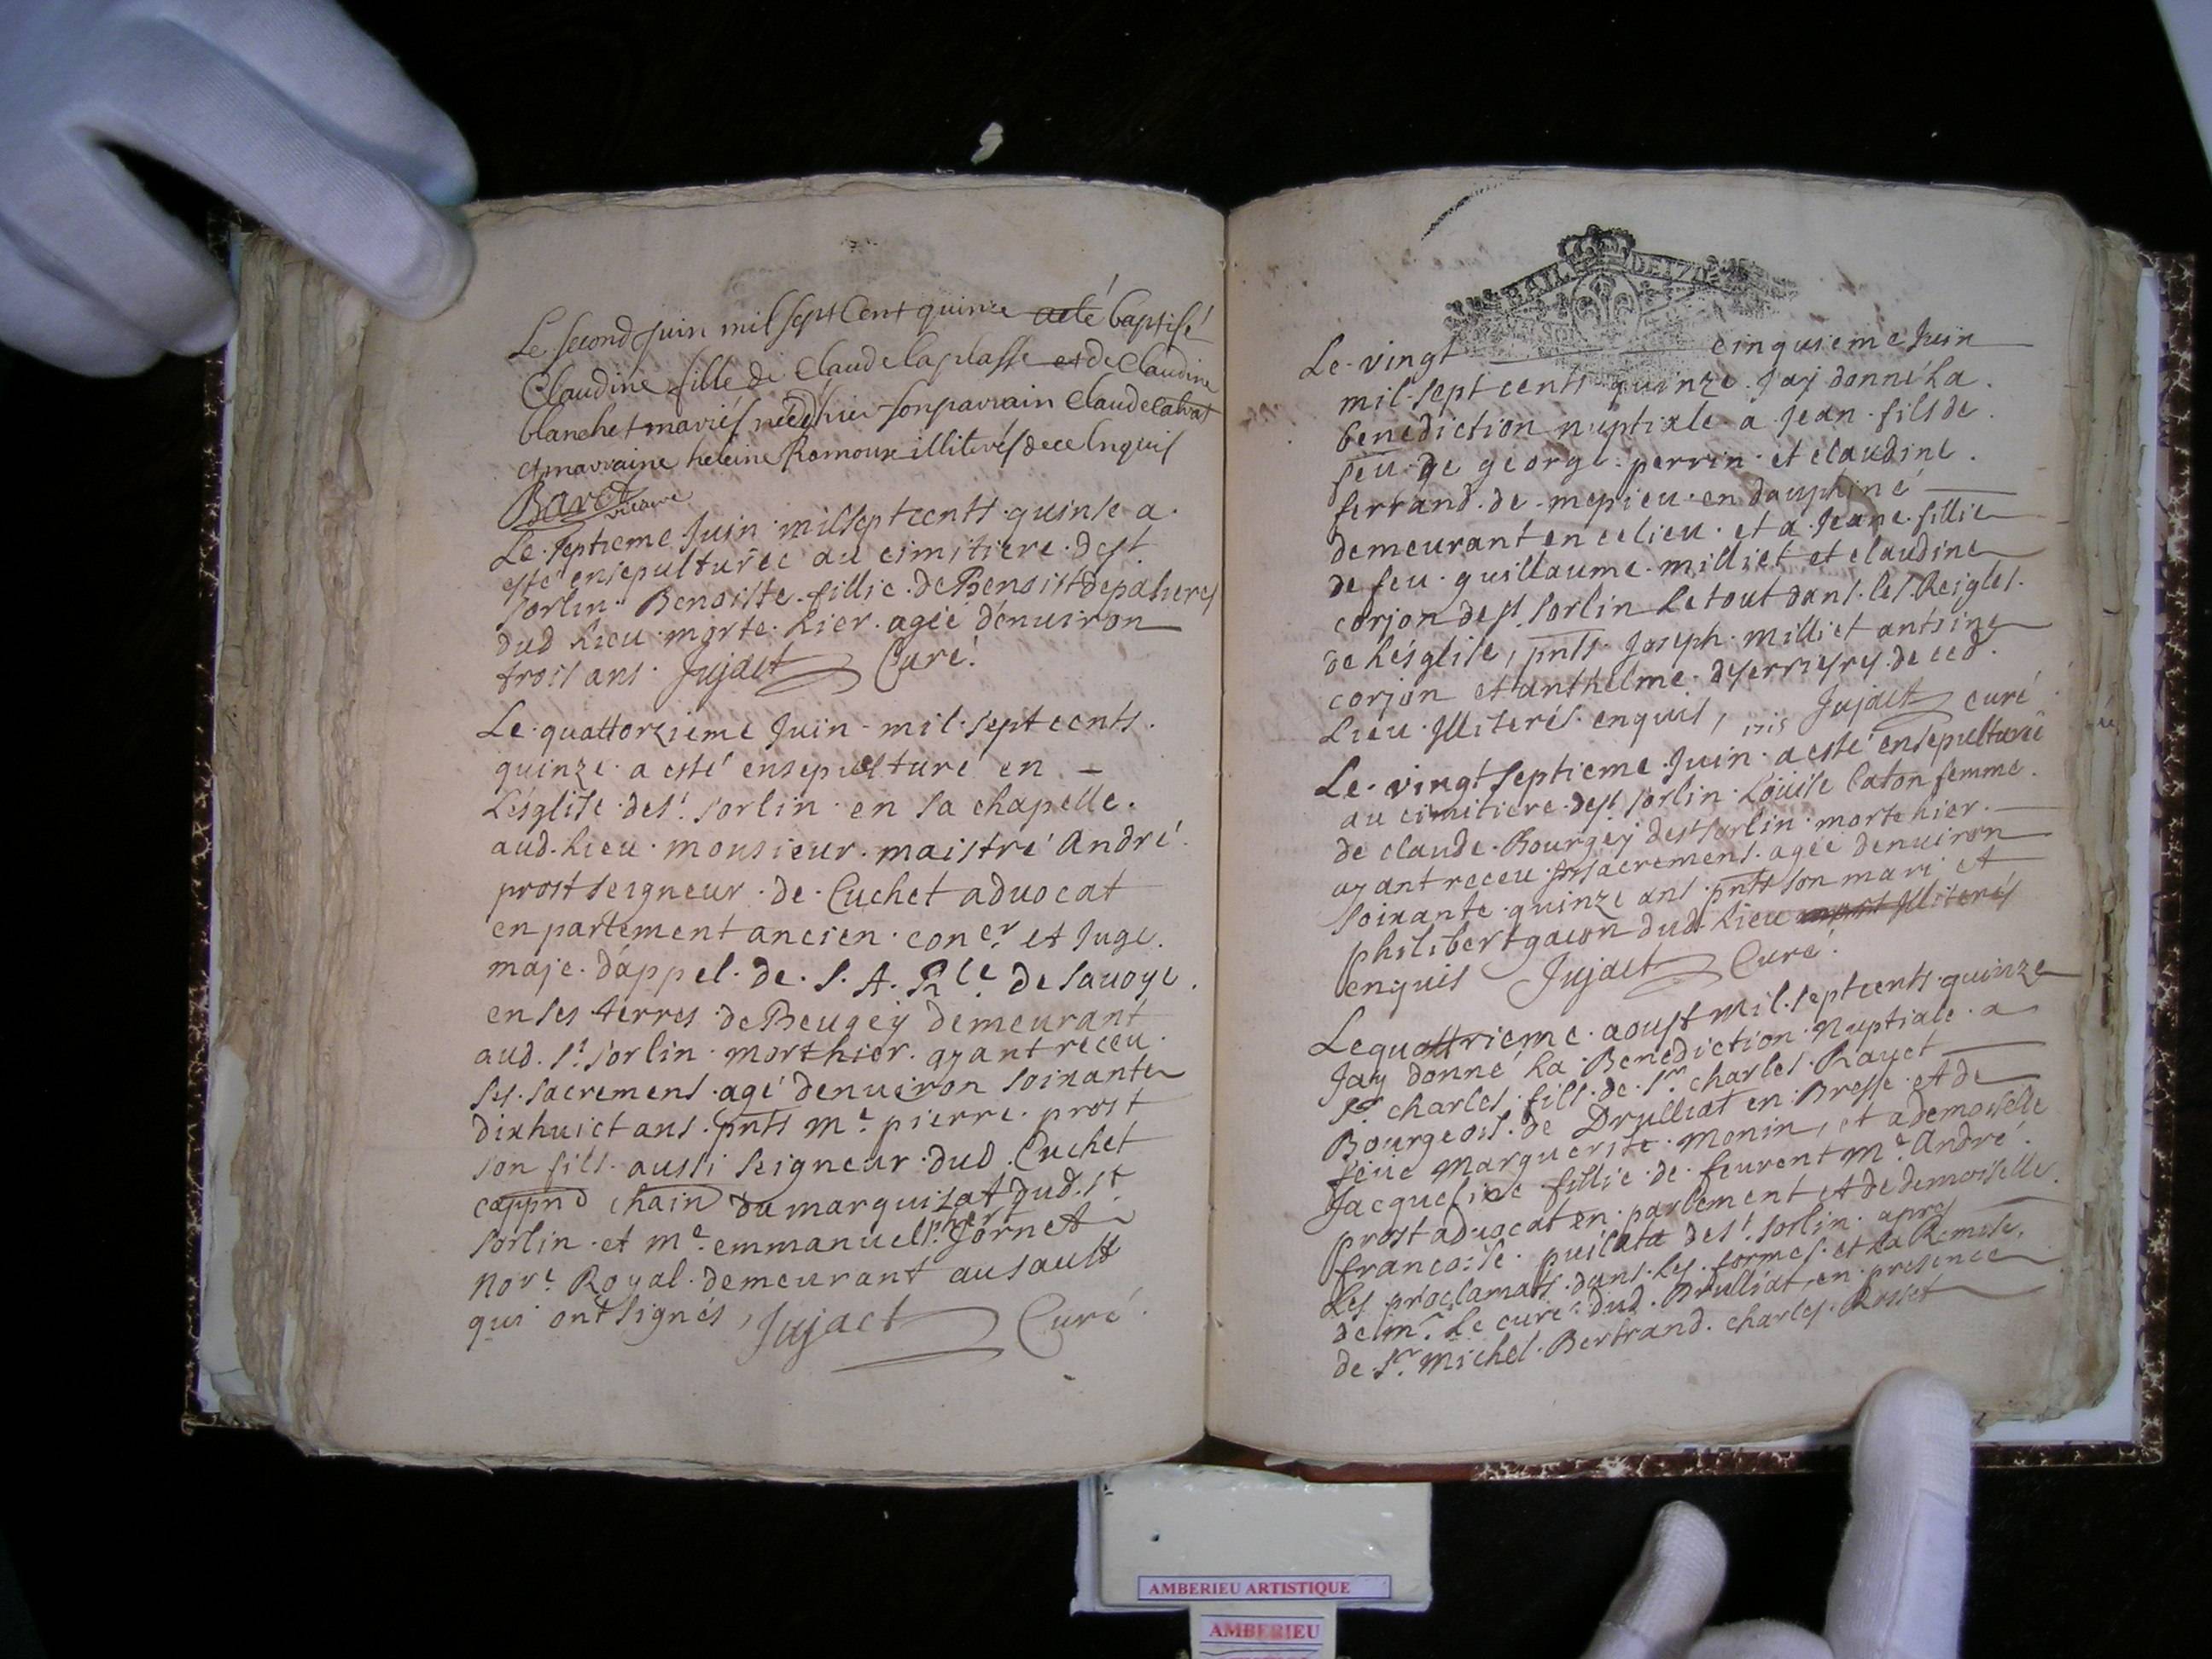 Le second Juin mil sept Cent quinze a eté baptisé
Claudine fille de Claude laplasse et de Claudine
blanchet mariés née hier son parrain Claude
et marraine heleine Ramoux illiterés de ce Enquis
Baret vicaire
Le septieme Juin mil sept cents quinse a
esté ensepulturée au cimitiere de st
sorlin Benoiste fillie de Benoist depalieres
dud Lieu morte hier agée d'enuiron
trois ans Jujact Curé
Le quattorzieme Juin mil sept cents
quinze a esté ensepulturé en
L'esglise de st sorlin en sa chapelle
aud Lieu monsieur maistre André
prost seigneur de Cuchet aduocat
en parlement ancien coner et Juge
maje d'appel de S. A. Rle de sauoye
en ses terres de Beugey demeurant
aud. st sorlin mort hier ayant receu
ses sacremens agé denuiron soixante
dixhuict ans pnts me pierre prost
son fils aussi seigneur dud Cuchet
chain du marquisat dud. st
sorlin et me emmanuel phert Jornet
nore Royal demeurant au sault
qui ont signés, Jujact Curé
PAR DE 171
Le vingt cinquieme Juin
mil sept cents quinze J'ay donné La
benediction nuptiale a Jean fils de
feu de george perrin et claudine
ferrand de mepieu en dauphiné
demeurant en ce lieu et a Jeane fillie
de feu guillaume milliet et claudine
corjon de st sorlin Le tout dans les Reigles
de L'esglise, pnts Joseph milliet antoine
corjon et anthelme deserrieres de ced
Lieu Illiterés enquis, 1715 Jujact curé
Le vingt septieme Juin a esté ensepulturée
au cimitiere de st sorlin Loüise Caton femme
de claude Bourgey de st sorlin morte hier
ayant receu ses sacremens agée denuiron
soixante quinze ans pnts son mari et
philibert gacon dud Lieu Illiterés
enquis Jujact Curé
Le quattrieme aoust mil sept cents quinze
Jay donné La Benediction Nuptiale a
sr charles fils de sr charles Rauet
Bourgeois de Drulliat en Bresse et de
feüe marguerite monin, et a demoiselle
Jacqueline fillie de feu rent me André
prost aduocat en parlement et de demoiselle
francoise puilata de st sorlin apres
Les proclamats dans les formes et La Remise
de mr Le curé dud. Drulliat en presence
de sr michel Bertrand charles Rosset
AMBERIEU ARTISTIQUE
AMBERIEU